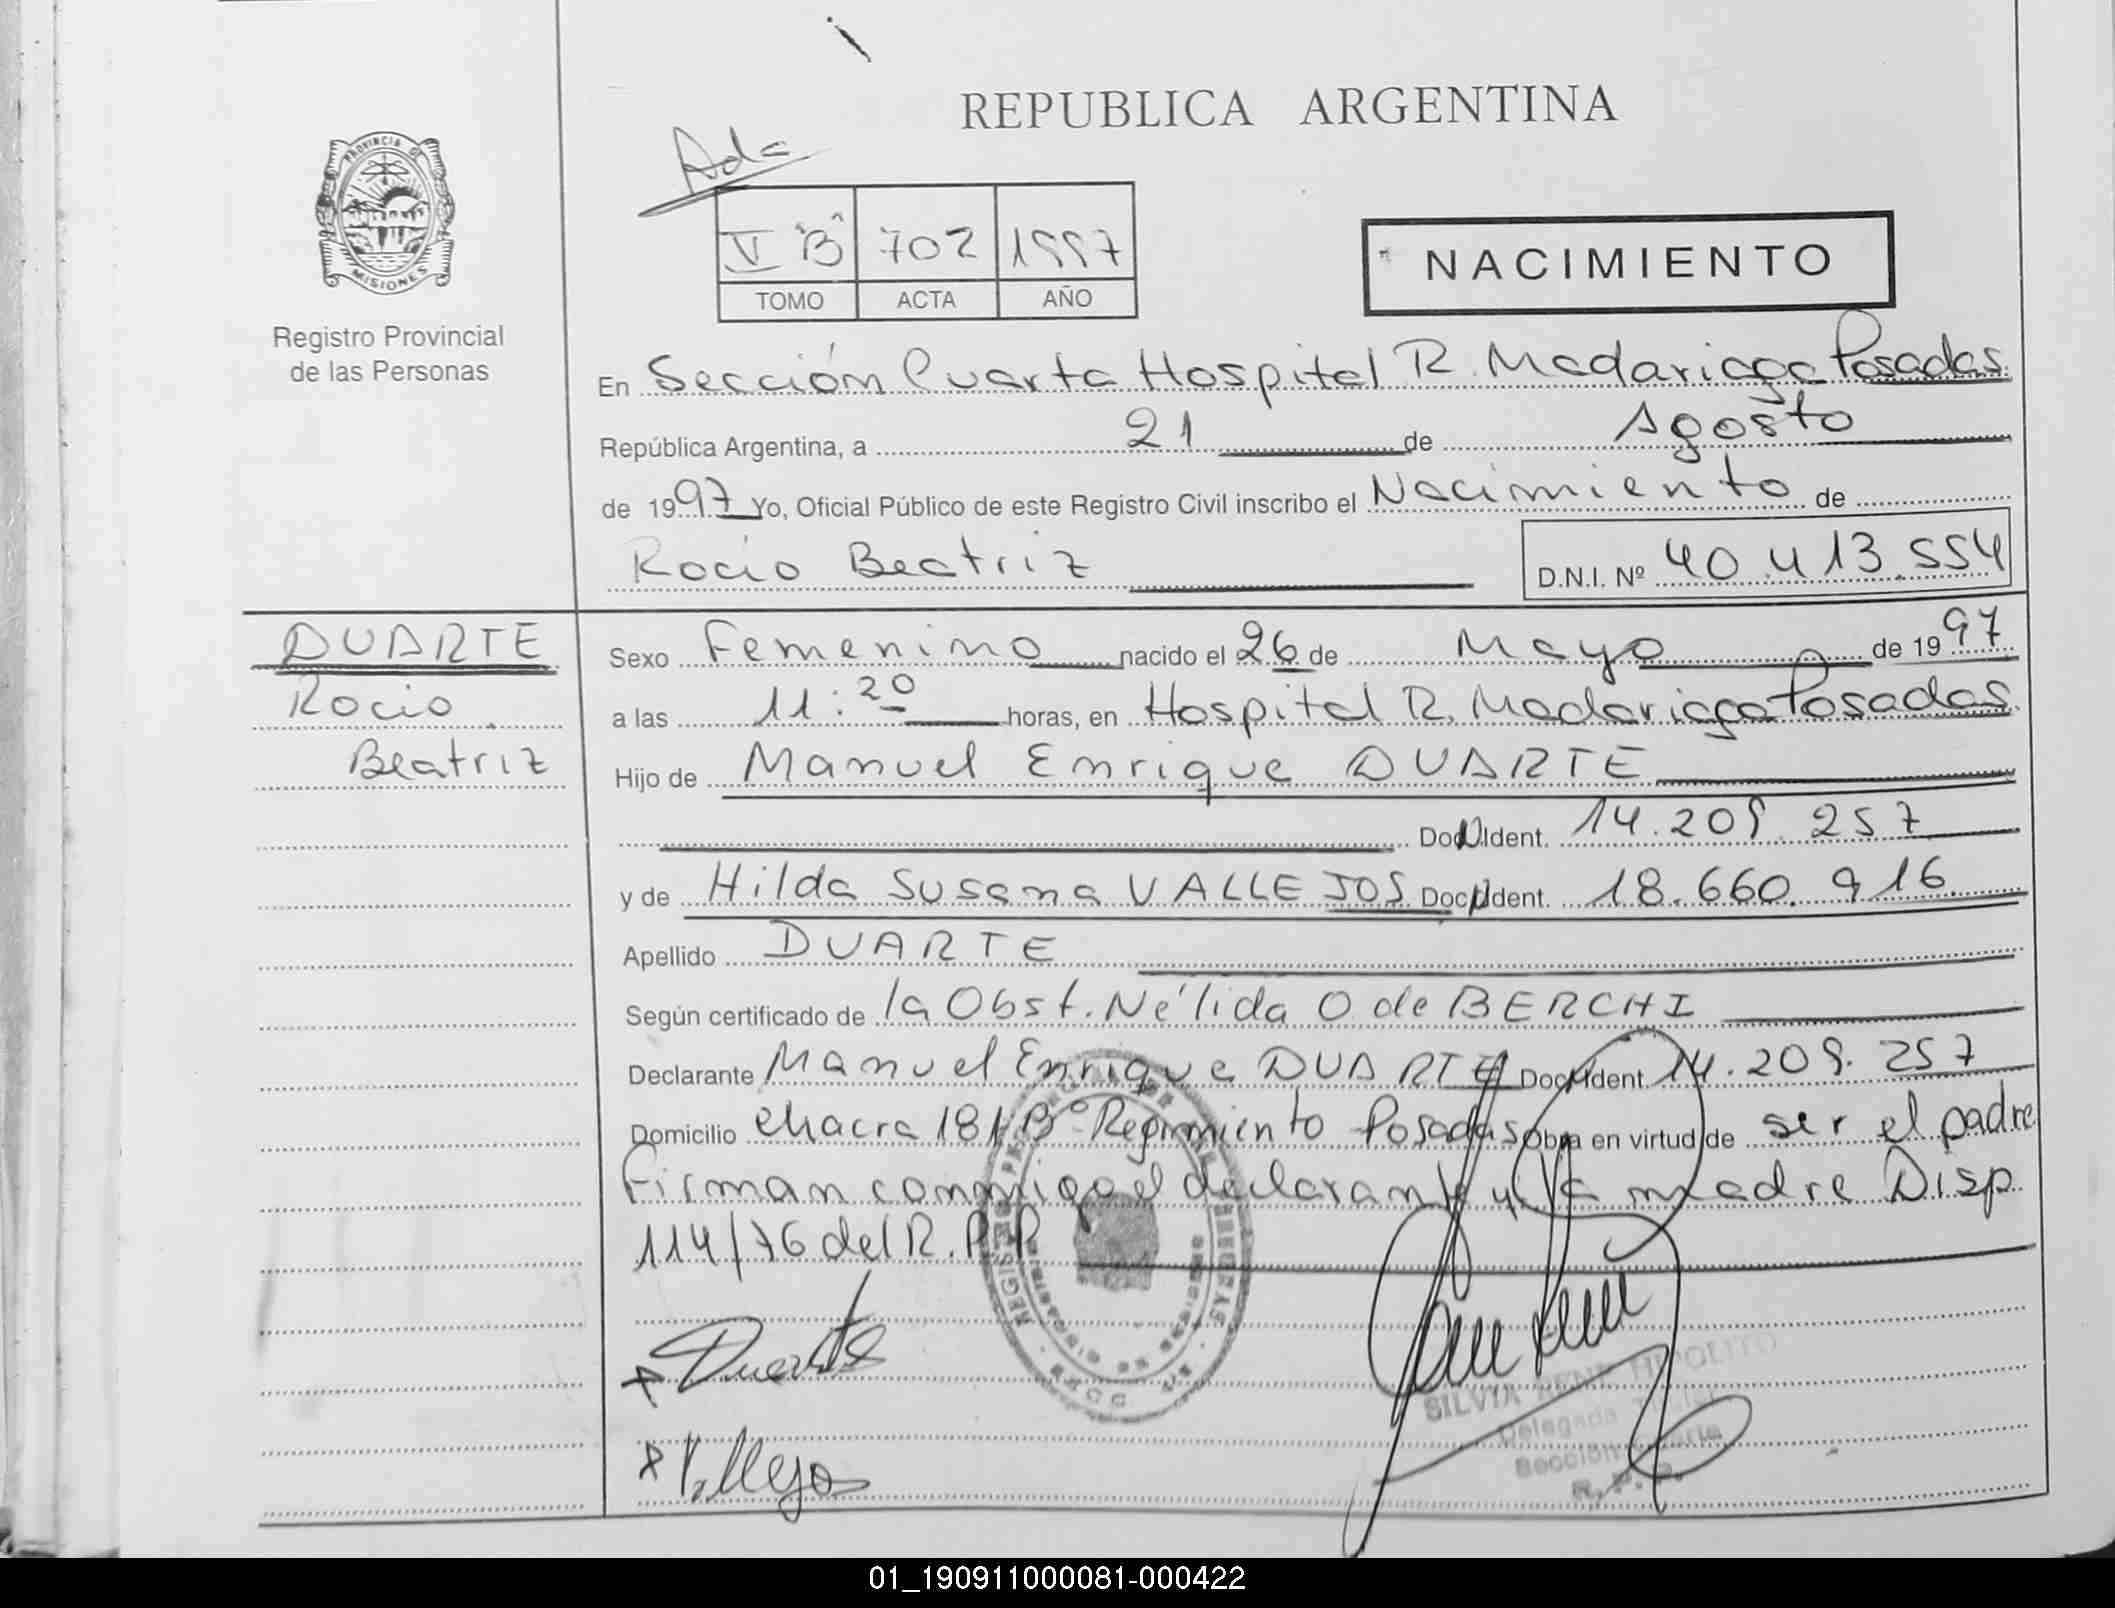 REPUBLICA ARGENTINA
Ada
PROVINCIA DE
MISIONES
Registro Provincial
de las Personas
V "B" 702 1997
TOMO ACTA AÑO
NACIMIENTO
En Sección Cuarta Hospital R. Madariaga Posadas
República Argentina, a 21 de Agosto
de 1997 Yo, Oficial Público de este Registro Civil inscribo el Nacimiento de
Rocio Beatriz D.N.I. Nº 40.413.554
DUARTE
Rocio
Beatriz
Sexo Femenino nacido el 26 de Mayo de 1997
a las 11:20 horas, en Hospital R. Madariaga Posadas
Hijo de Manuel Enrique DUARTE
Doc. Ident. 14.209.257
y de Hilda Susana VALLEJOS Doc. Ident. 18.660.916
Apellido DUARTE
Según certificado de la Obst. Nélida O de BERCHI
Declarante Manuel Enrique DUARTE Doc. Ident. 14.209.257
Domicilio chacra 181 Bº Regimiento Posadas Obra en virtud de ser el padre
Firman conmigo el declarante y la madre Disp.
114/76 del R.P.P
Duarte
Vallejos
SILVIA HIPOLITO
Delegada Titular
Sección Cuarta
R.P.P.
01_190911000081-000422